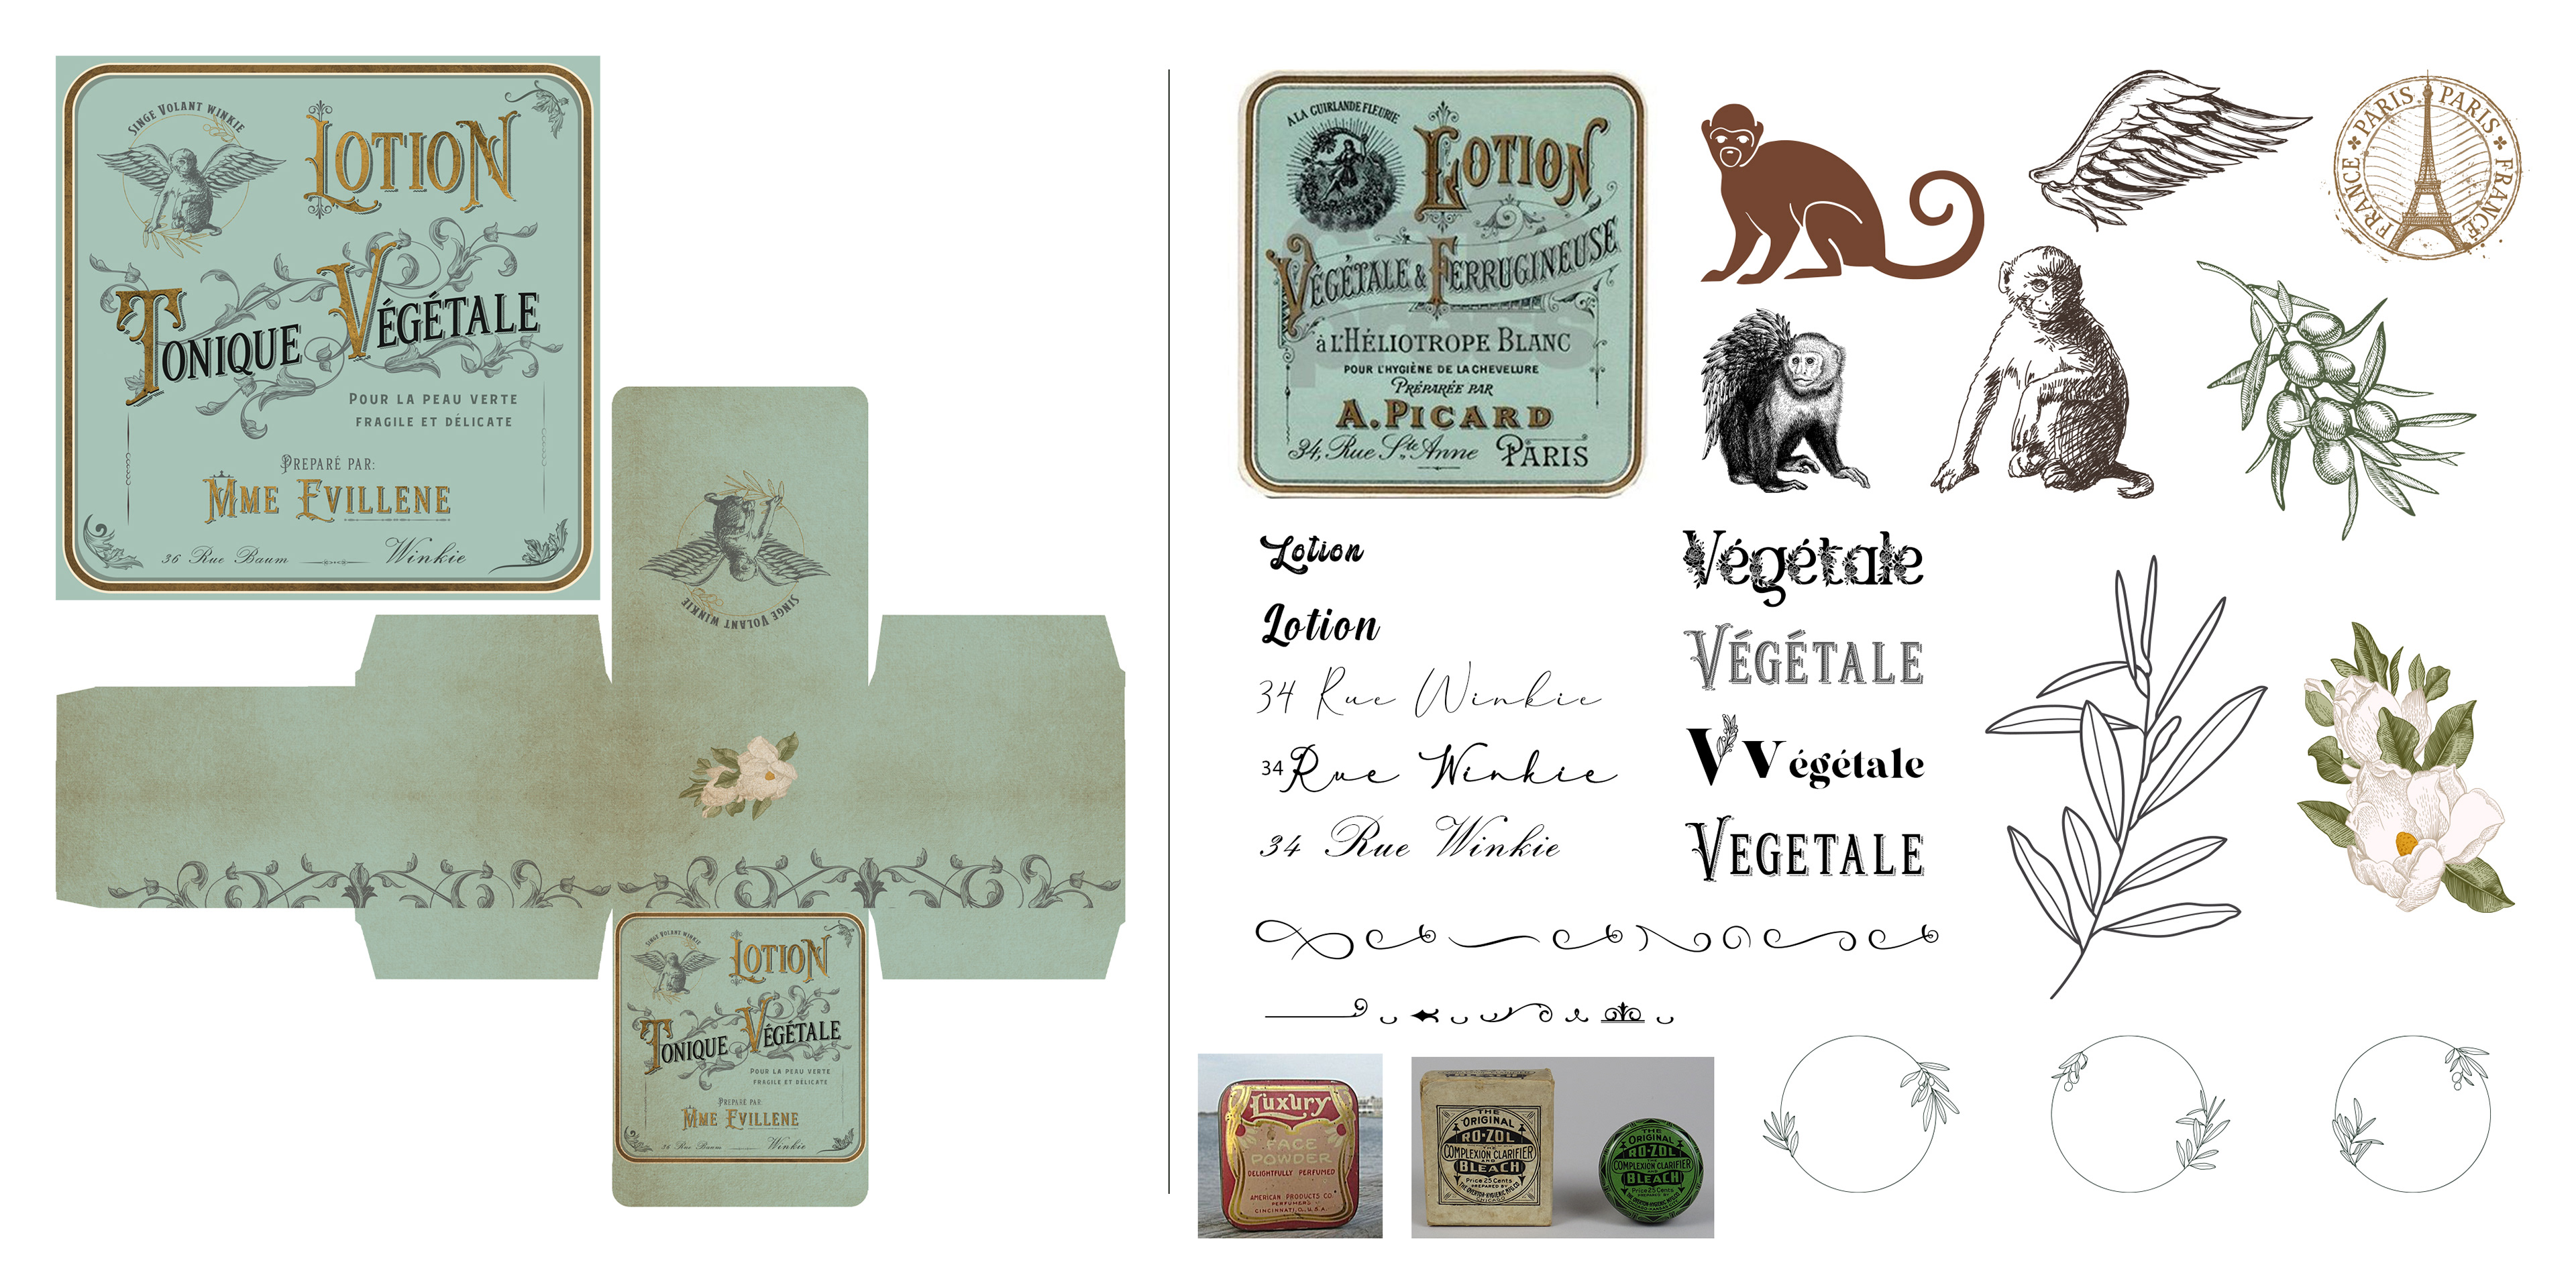 SINGE VOLANT WINKIE
LOTION
TONIQUE VÉGÉTALE
POUR LA PEAU VERTE
FRAGILE ET DÉLICATE
PREPARÉ PAR:
MME EVILLENE
36 Rue Baum Winkie
SINGE VOLANT WINKIE
SINGE VOLANT WINKIE
LOTION
TONIQUE VÉGÉTALE
POUR LA PEAU VERTE
FRAGILE ET DÉLICATE
PREPARÉ PAR:
MME EVILLENE
36 Rue Baum Winkie
A LA GUIRLANDE FLEURIE
LOTION
VÉGÉTALE & FERRUGINEUSE
à L'HÉLIOTROPE BLANC
POUR L'HYGIÈNE DE LA CHEVELURE
PRÉPARÉE PAR
A. PICARD
34, Rue Ste Anne PARIS
PARIS PARIS
FRANCE FRANCE
Lotion
Lotion
34 Rue Winkie
34 Rue Winkie
34 Rue Winkie
Végétale
VÉGÉTALE
V végétale
VEGETALE
Luxury
FACE
POWDER
DELIGHTFULLY PERFUMED
AMERICAN PRODUCTS CO.
PERFUMERS
CINCINNATI, O., U.S.A.
THE
ORIGINAL
RO-ZOL
COMPLEXION CLARIFIER
AND
BLEACH
Price 25 Cents
PREPARED BY
THE OVERTON-HYGIENIC MFG. CO.
CHICAGO
THE
ORIGINAL
RO-ZOL
COMPLEXION CLARIFIER
AND
BLEACH
Price 25 Cents
PREPARED BY